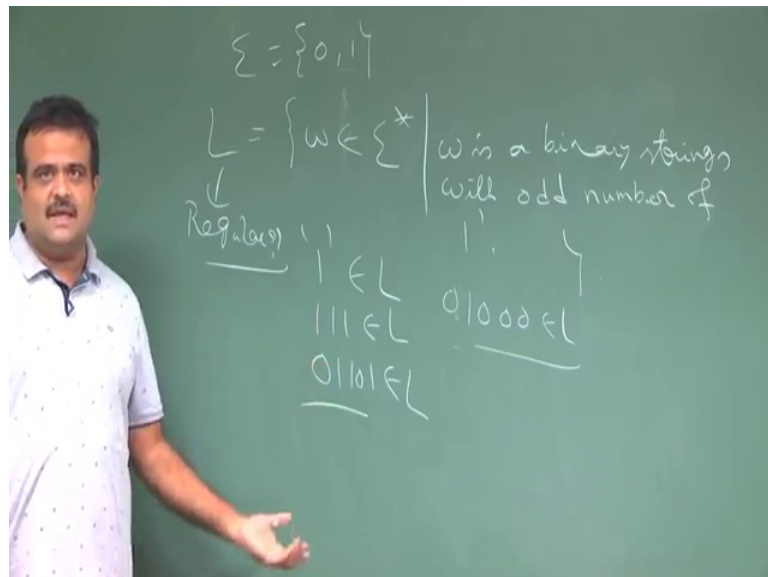 Σ = {0, 1}
L = {w ∈ Σ* | w is a binary strings
with odd number of
1'. }
Regular?
1 ∈ L
111 ∈ L
01101 ∈ L
01000 ∈ L